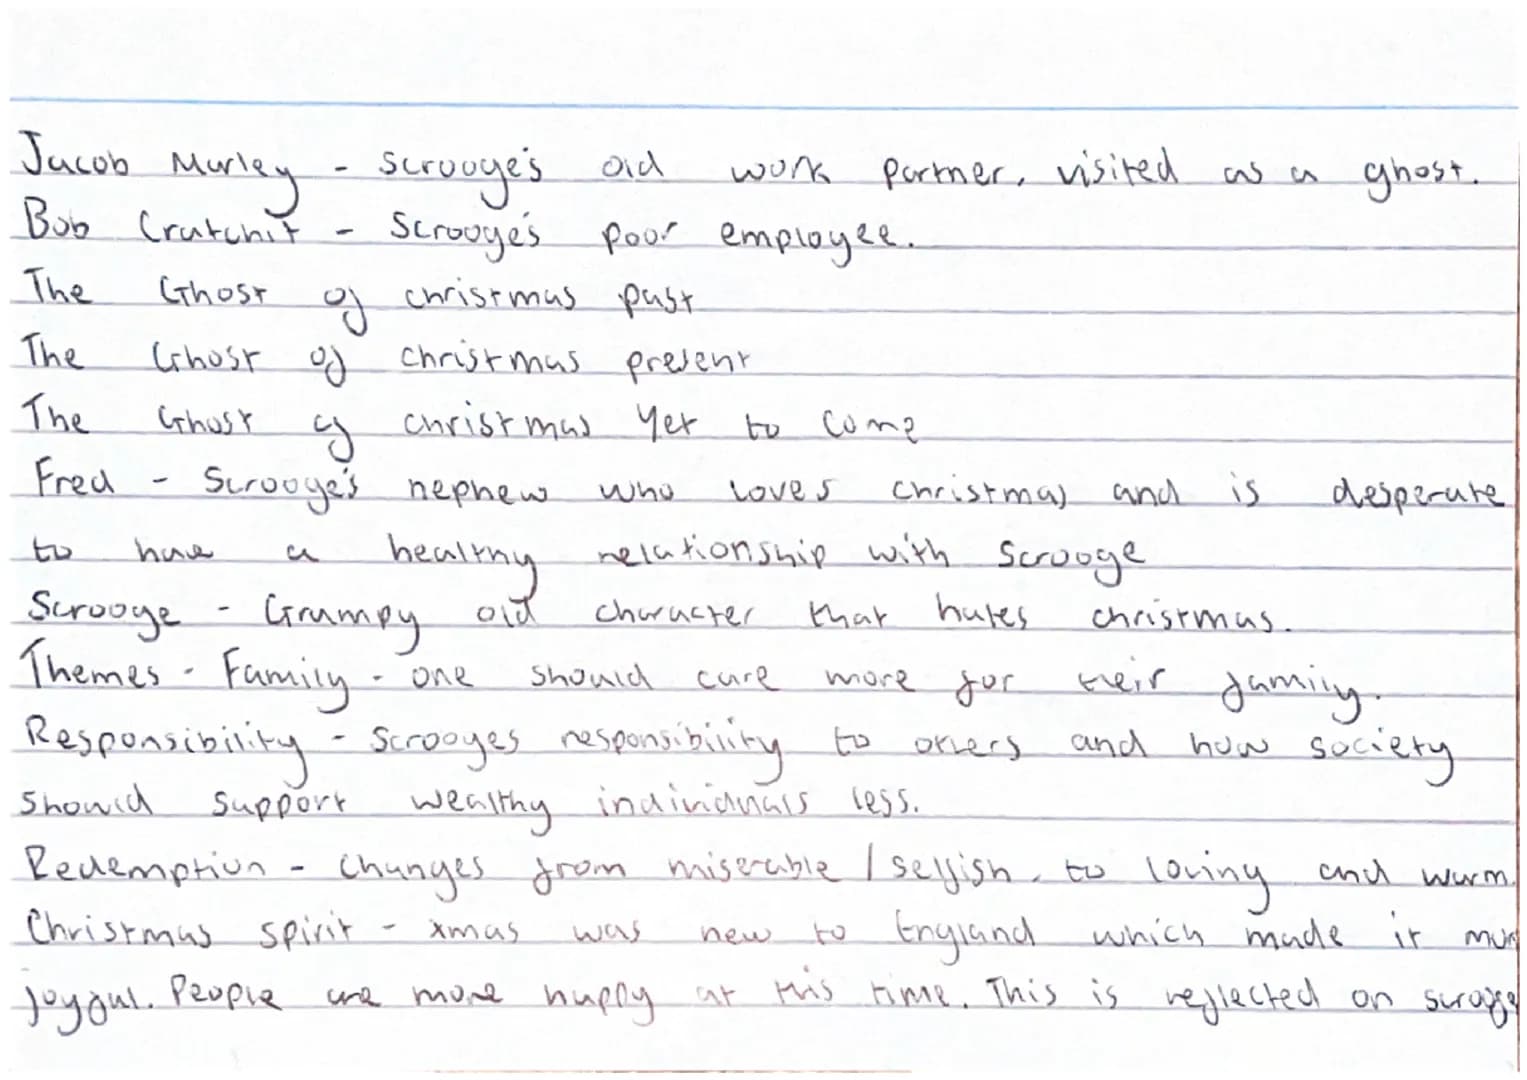 Jacob Marley - Scrooge's old work partner, visited as a ghost.
Bob Cratchit - Scrooge's poor employee.
The Ghost of christmas past
The Ghost of christmas present
The Ghost of christmas Yet to Come
Fred - Scrooge's nephew who loves christmas and is desperate
to have a healthy relationship with Scrooge
Scrooge - Grumpy old character that hates christmas.
Themes - Family - one should care more for their family.
Responsibility - Scrooges responsibility to others and how society
should support wealthy individuals less.
Redemption - Changes from miserable / selfish. to loving and warm.
Christmas spirit - xmas was new to England which made it more
joyful. People are more happy at this time. This is reflected on scrooge